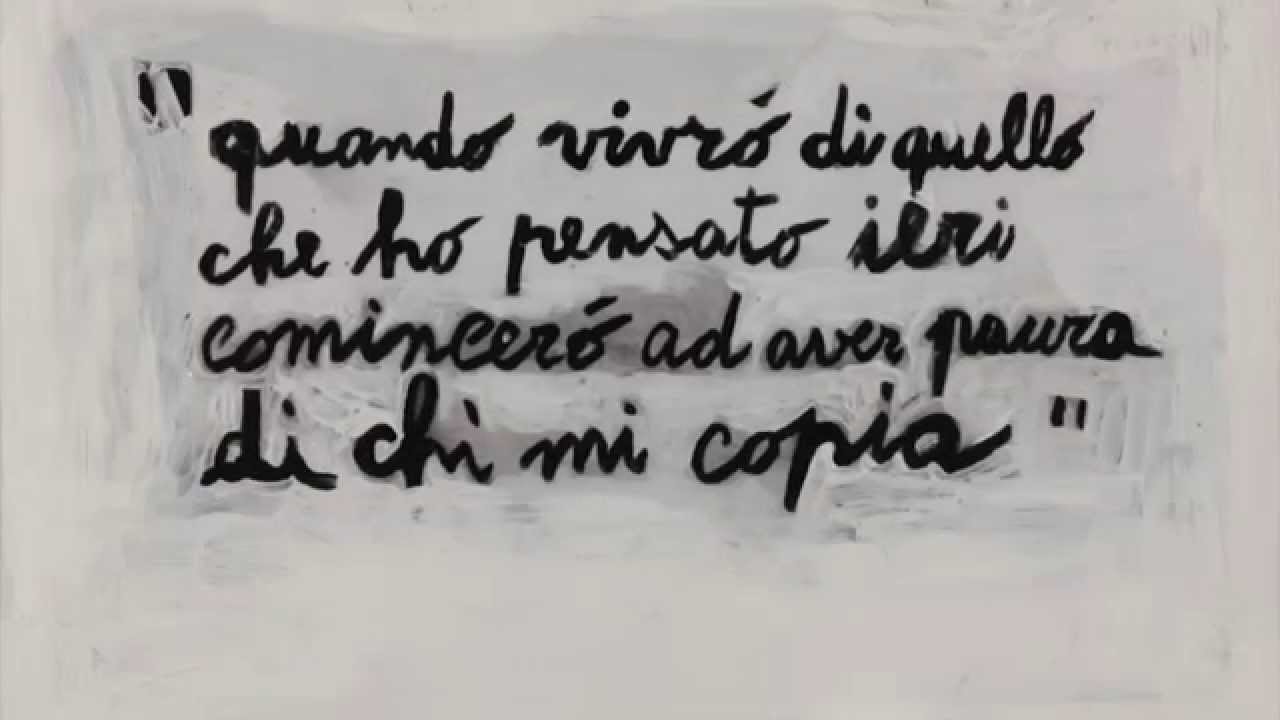 "quando vivró di quello
che ho pensato ieri
cominceró ad aver paura
di chì mi copia"